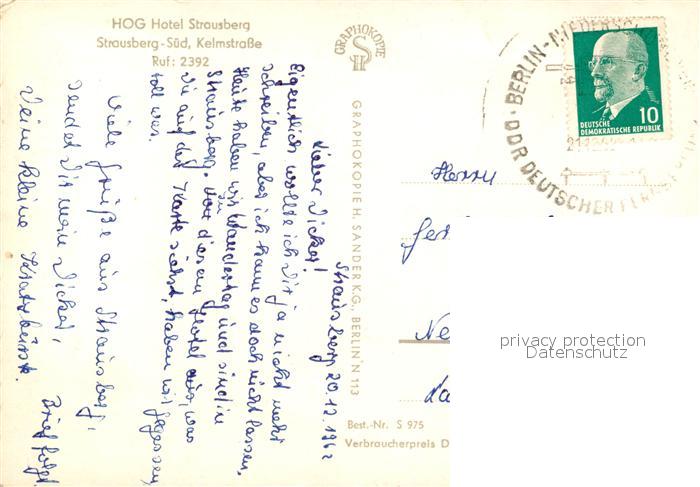 HOG Hotel Strausberg
Strausberg-Süd, Kelmstraße
Ruf: 2392
Strausberg 20.12.1962
Lieber Dicker!
Eigentlich wollte ich Dir ja nicht mehr
schreiben, aber ich kann es doch nicht lassen.
Heute haben wir Wandertag und sind in
Strausberg. Von diesem Hotel aus, was
Du auf der Karte siehst, haben wir gegessen,
toll was.
Viele Grüße aus Strausberg,
sendet Dir mein Dicker,
Deine kleine Kratzbürste.
Brief folgt
GRAPHOKOPIE
GRAPHOKOPIE H. SANDER K.G., BERLIN N 113
BERLIN-NIEDERSCH
DDR DEUTSCHER FERNSE
10
DEUTSCHE
DEMOKRATISCHE REPUBLIK
Herrn
Ger
Ne
privacy protection
Datenschutz
Best.-Nr. S 975
Verbraucherpreis D